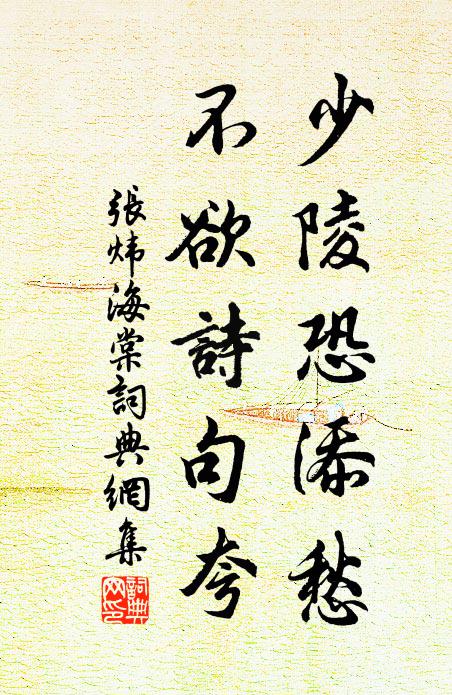 少陵恐添愁
不欲詩句夸
張炜海棠詞典網集
詞典
网印